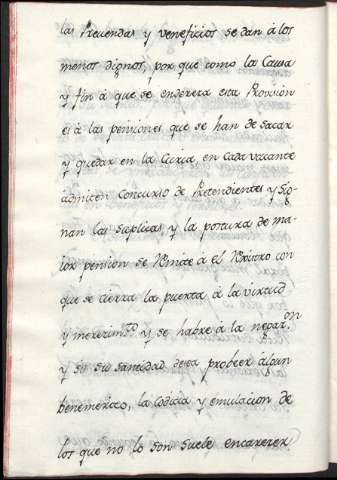 las Prevendas y veneficios se dan à los
menos dignos, por que como la Causa
y fin à que se endereza esta Provision
es à las pensiones que se han de sacar
y quedar en la Curia, en cada vacante
admiten Concurso de Pretendientes y Sig-
nan las Suplicas, y la postura de ma-
ior pension se Rmite à el Rxistro con
que se cierra la puerta à la virtud
y merecim.to y se habre à la negaz.on
y si su santidad desea probeer àlgun
benemerito, la codicia y emulacion de
los que no lo son suele encarezer